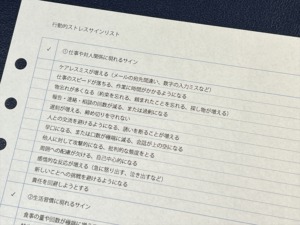 行動的ストレスサインリスト
✓ ①仕事や対人関係に現れるサイン
ケアレスミスが増える（メールの宛先間違い、数字の入力ミスなど）
仕事のスピードが落ちる、作業に時間がかかるようになる
物忘れが多くなる（約束を忘れる、頼まれたことを忘れる、探し物が増える）
報告・連絡・相談の回数が減る、または過剰になる
遅刻が増える、締め切りを守れない
人との交流を避けるようになる、誘いを断ることが増える
早口になる、または口数が極端に減る、会話が上の空になる
他人に対して攻撃的になる、批判的な態度をとる
周囲への配慮が欠ける、自己中心的になる
感情的な反応が増える（急に怒り出す、泣き出すなど）
新しいことへの挑戦を避けるようになる
責任を回避しようとする
✓ ②生活習慣に現れるサイン
食事の量や回数が極端に